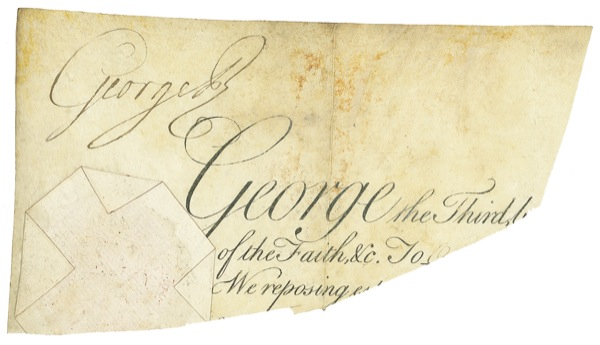 George R
George the Third,
of the Faith, &c. To
We reposing